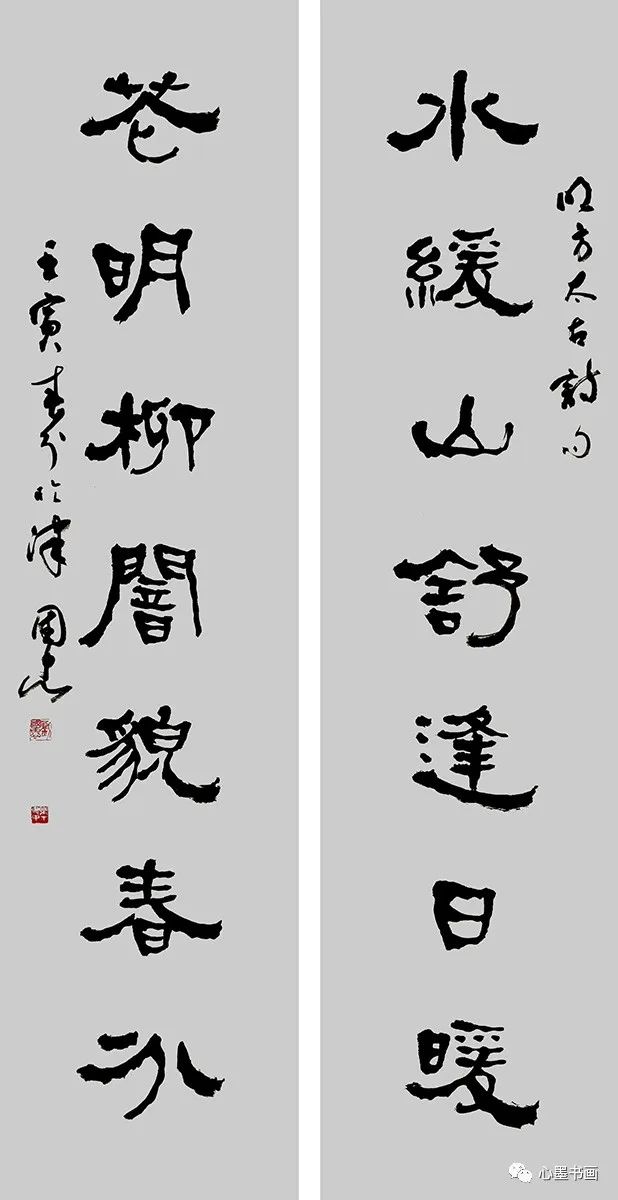 明方太古詩句
水緩山舒逢日暖
花明柳闇貌春分
壬寅春分於津
心墨书画